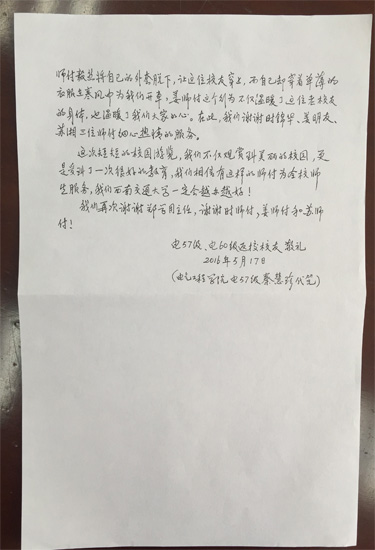 师付毅然将自己的外套脱下，让这位校友穿上，而自己却穿着单薄的
衣服在寒风中为我们开车，姜师付这个行为不仅温暖了这位老校友
的身体，也温暖了我们大家的心。在此，我们谢谢时锦华、姜明友、
苏湘三位师付细心热情的服务。
这次短短的校园游览，我们不仅观赏到美丽的校园，更
是受到了一次很好的教育，我们相信有这样的师付为全校师
生服务，我们西南交通大学一定会越办越好！
我们再次谢谢郑 主任，谢谢时师付，姜师付和苏师
付！
电57级、电60级返校校友 敬礼
2016年5月17日
(电气工程学院电57级秦慧珍代笔)